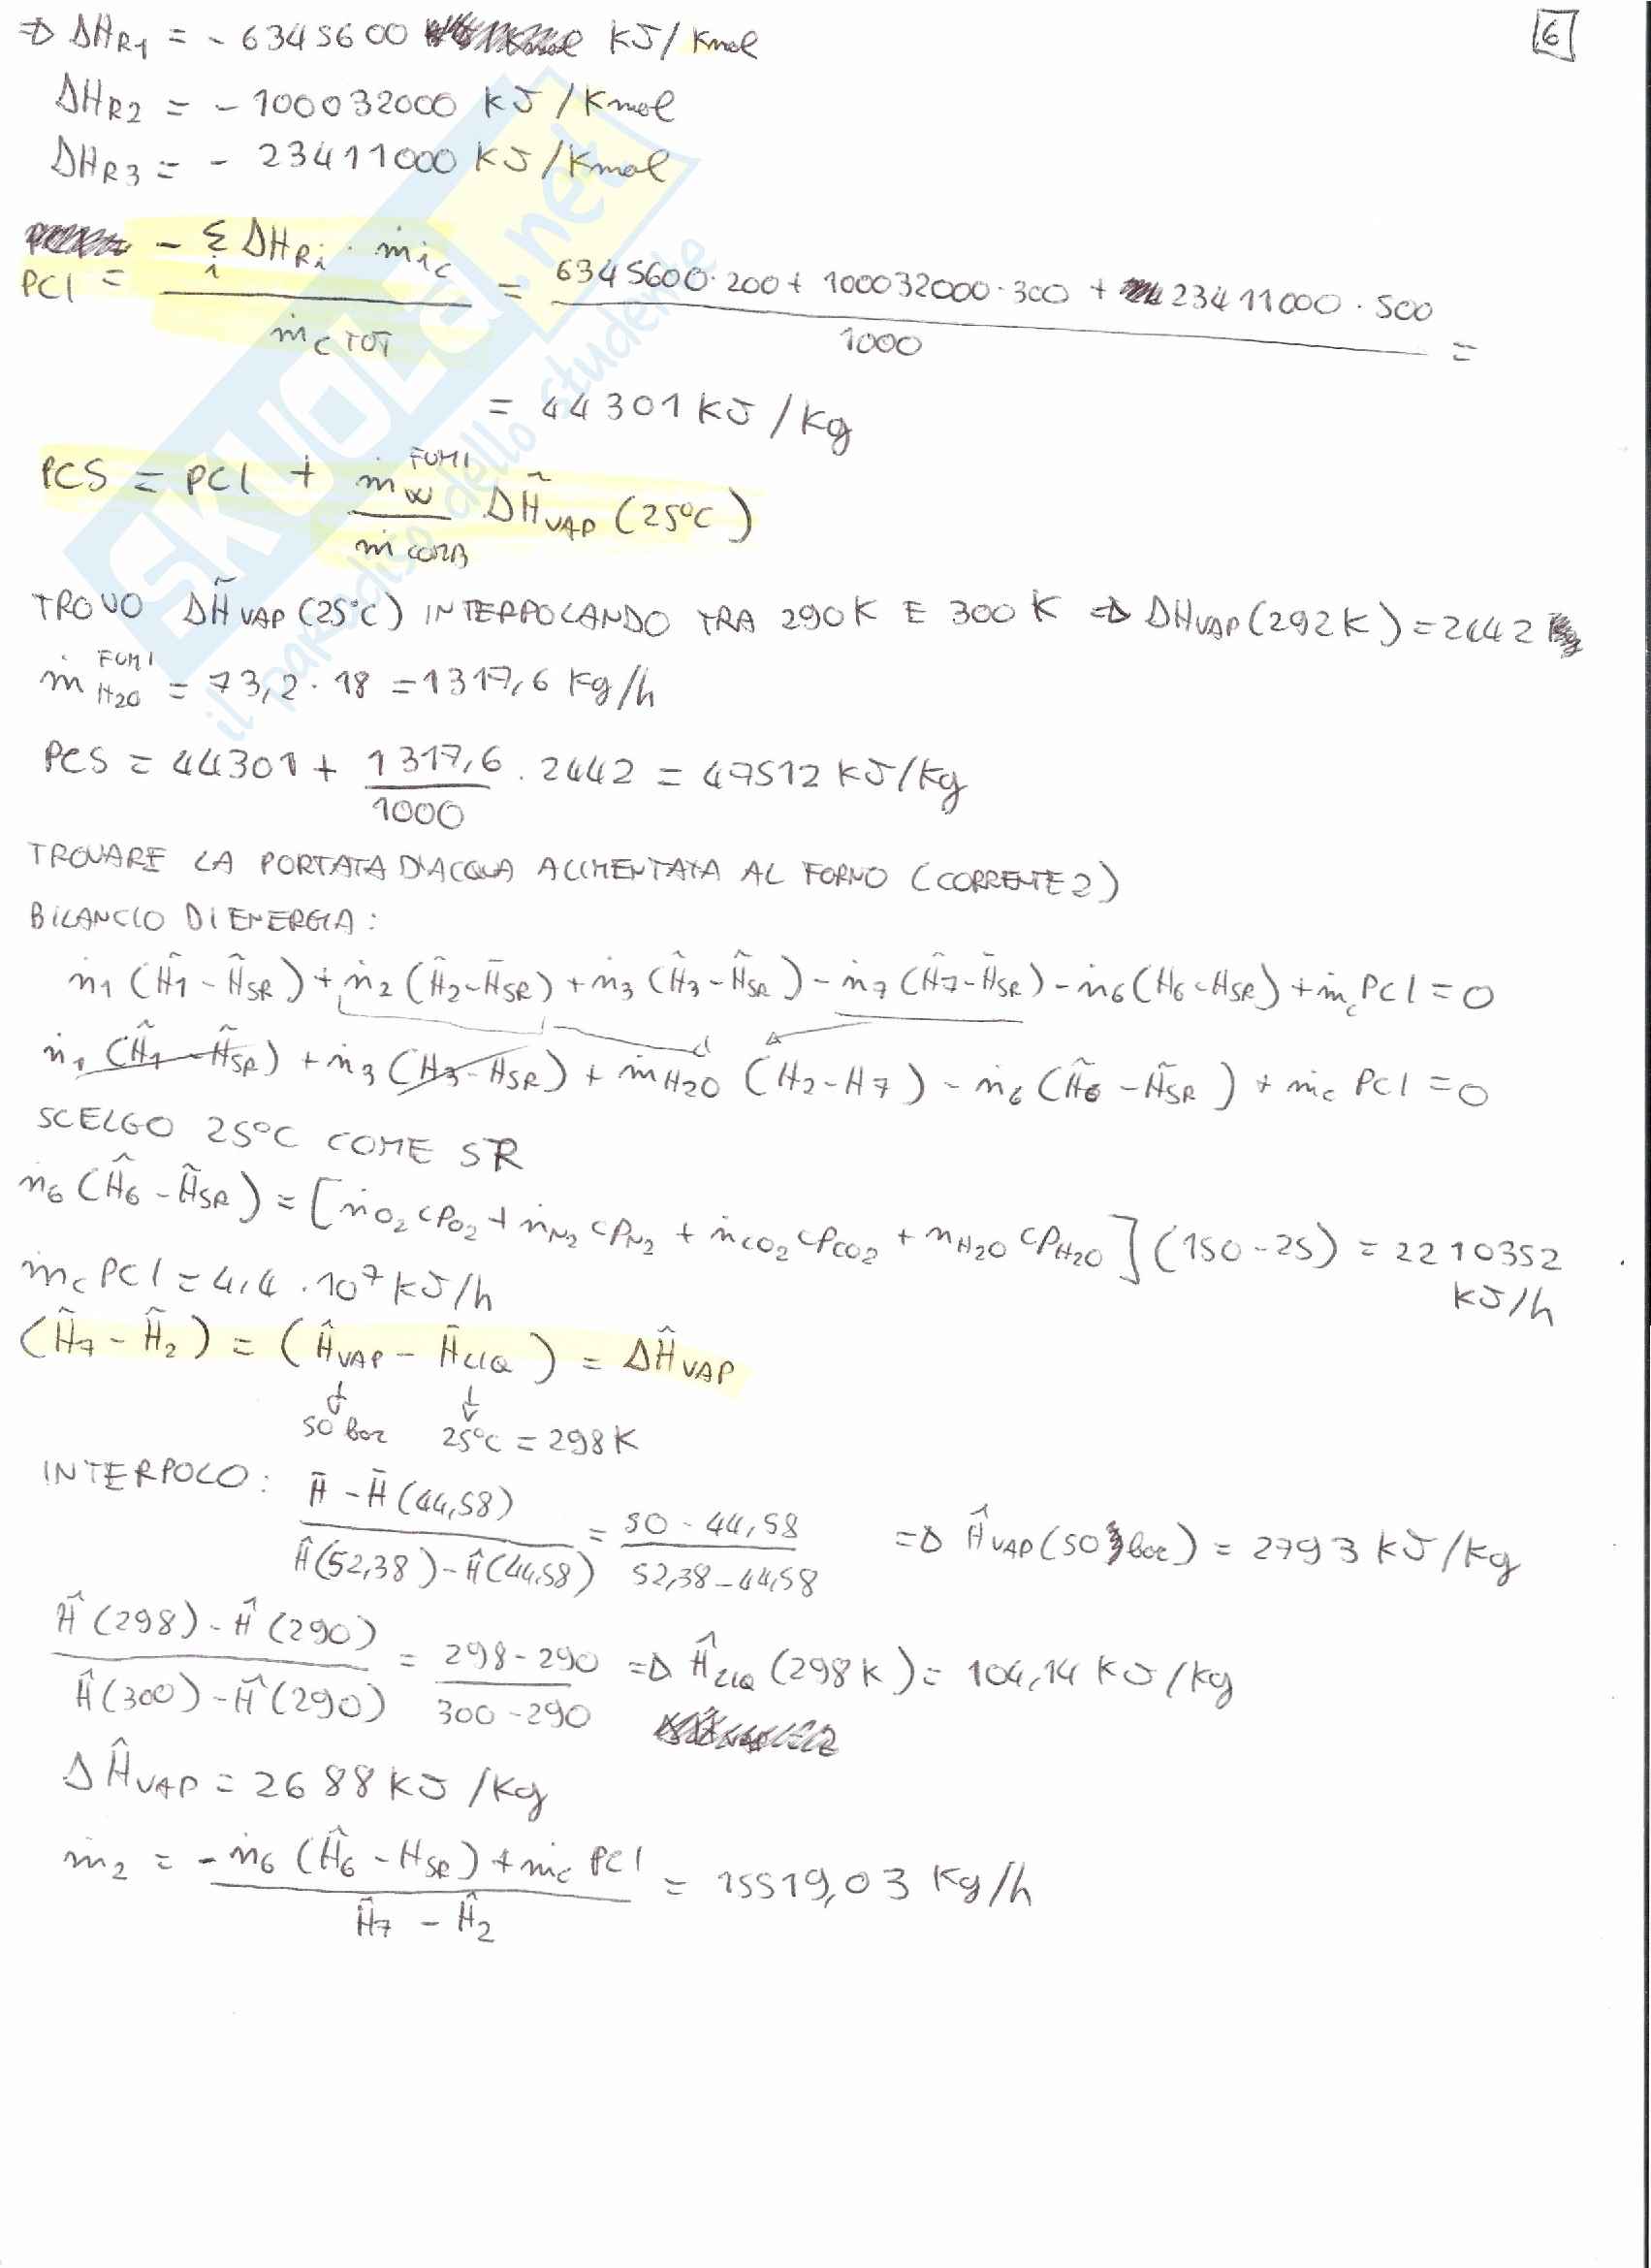 ⇒ ΔHR1 = - 6345600 KJ/Kmol
6
ΔHR2 = - 100032000 KJ/Kmol
ΔHR3 = - 23411000 KJ/Kmol
PCI = - Σi ΔHRi · ṁic / ṁc TOT = 6345600·200 + 100032000·300 + 23411000·500 / 1000 =
= 44301 KJ/Kg
PCS = PCI + ṁw FUMI / ṁ COMB ΔĤVAP (25°C)
TROVO ΔĤVAP (25°C) INTERPOLANDO TRA 290K E 300K ⇒ ΔHVAP (292K) = 2442
ṁ H2O FUMI = 73,2 · 18 = 1317,6 Kg/h
PCS = 44301 + 1317,6 / 1000 · 2442 = 47512 KJ/Kg
TROVARE LA PORTATA D'ACQUA ALIMENTATA AL FORNO (CORRENTE 2)
BILANCIO DI ENERGIA:
ṅ1 (Ĥ1 - ĤSR) + ṅ2 (Ĥ2 - ĤSR) + ṅ3 (Ĥ3 - ĤSR) - ṅ7 (Ĥ7 - ĤSR) - ṅ6 (H6 - HSR) + ṁc PCI = 0
ṅ1 (Ĥ1 - ĤSR) + ṅ3 (H3 - HSR) + ṁH2O (H2 - H7) - ṅ6 (Ĥ6 - ĤSR) + ṁc PCI = 0
SCELGO 25°C COME SR
ṅ6 (Ĥ6 - ĤSR) = [ṅO2 cPO2 + ṅN2 cPN2 + ṅCO2 cPCO2 + ṅH2O cPH2O] (150 - 25) = 2210352 KJ/h
ṁc PCI = 4,4 · 10^7 KJ/h
(Ĥ7 - Ĥ2) = (ĤVAP - ĤLIQ) = ΔĤVAP
50 bar 25°C = 298K
INTERPOLO: Ĥ - Ĥ(44,58) / Ĥ(52,38) - Ĥ(44,58) = 50 - 44,58 / 52,38 - 44,58 ⇒ ĤVAP (50 bar) = 2793 KJ/Kg
Ĥ(298) - Ĥ(290) / Ĥ(300) - Ĥ(290) = 298 - 290 / 300 - 290 ⇒ ĤLIQ (298K) = 104,14 KJ/Kg
ΔĤVAP = 2688 KJ/Kg
ṁ2 = - ṅ6 (Ĥ6 - HSR) + ṁc PCI / Ĥ7 - Ĥ2 = 15519,03 Kg/h
SKUOLA.net
il paradiso dello studente